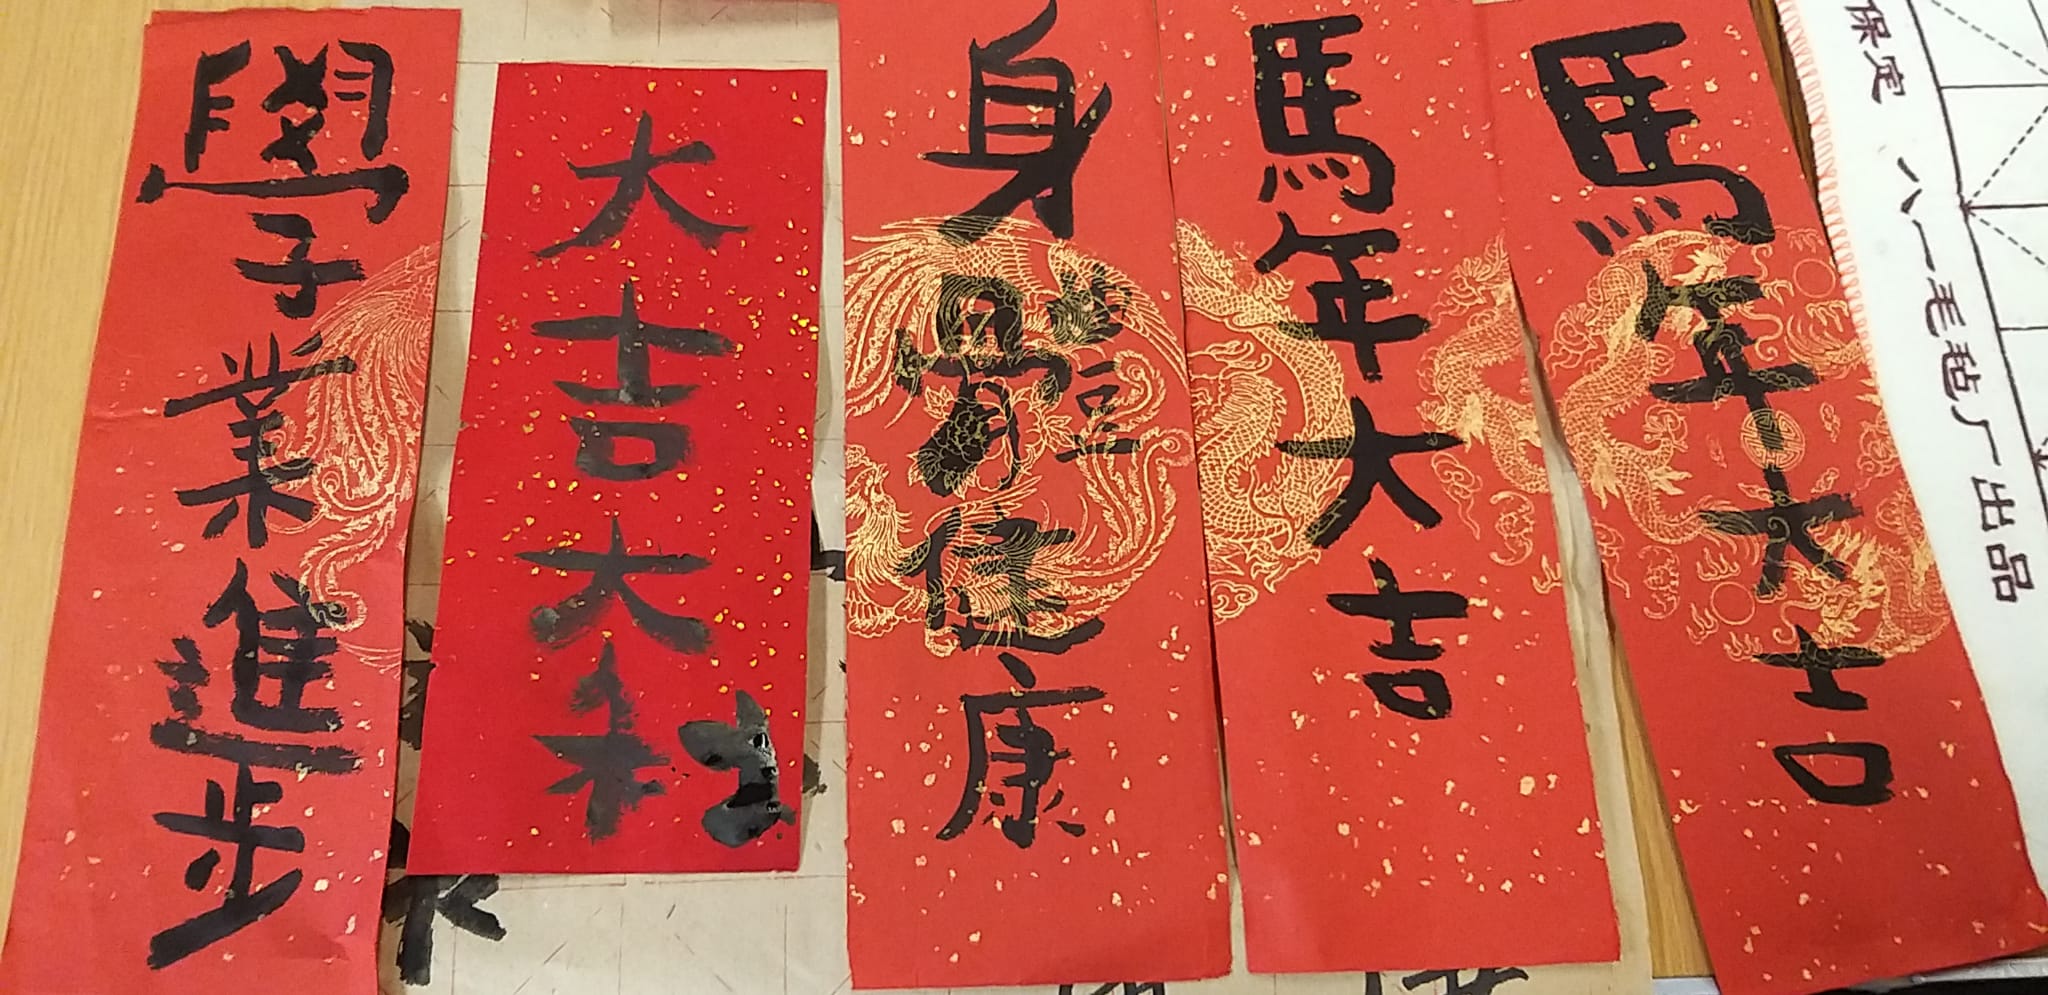 學業進步
大吉大
身體健康
馬年大吉
馬年大吉
保定 八一毛毡厂出品